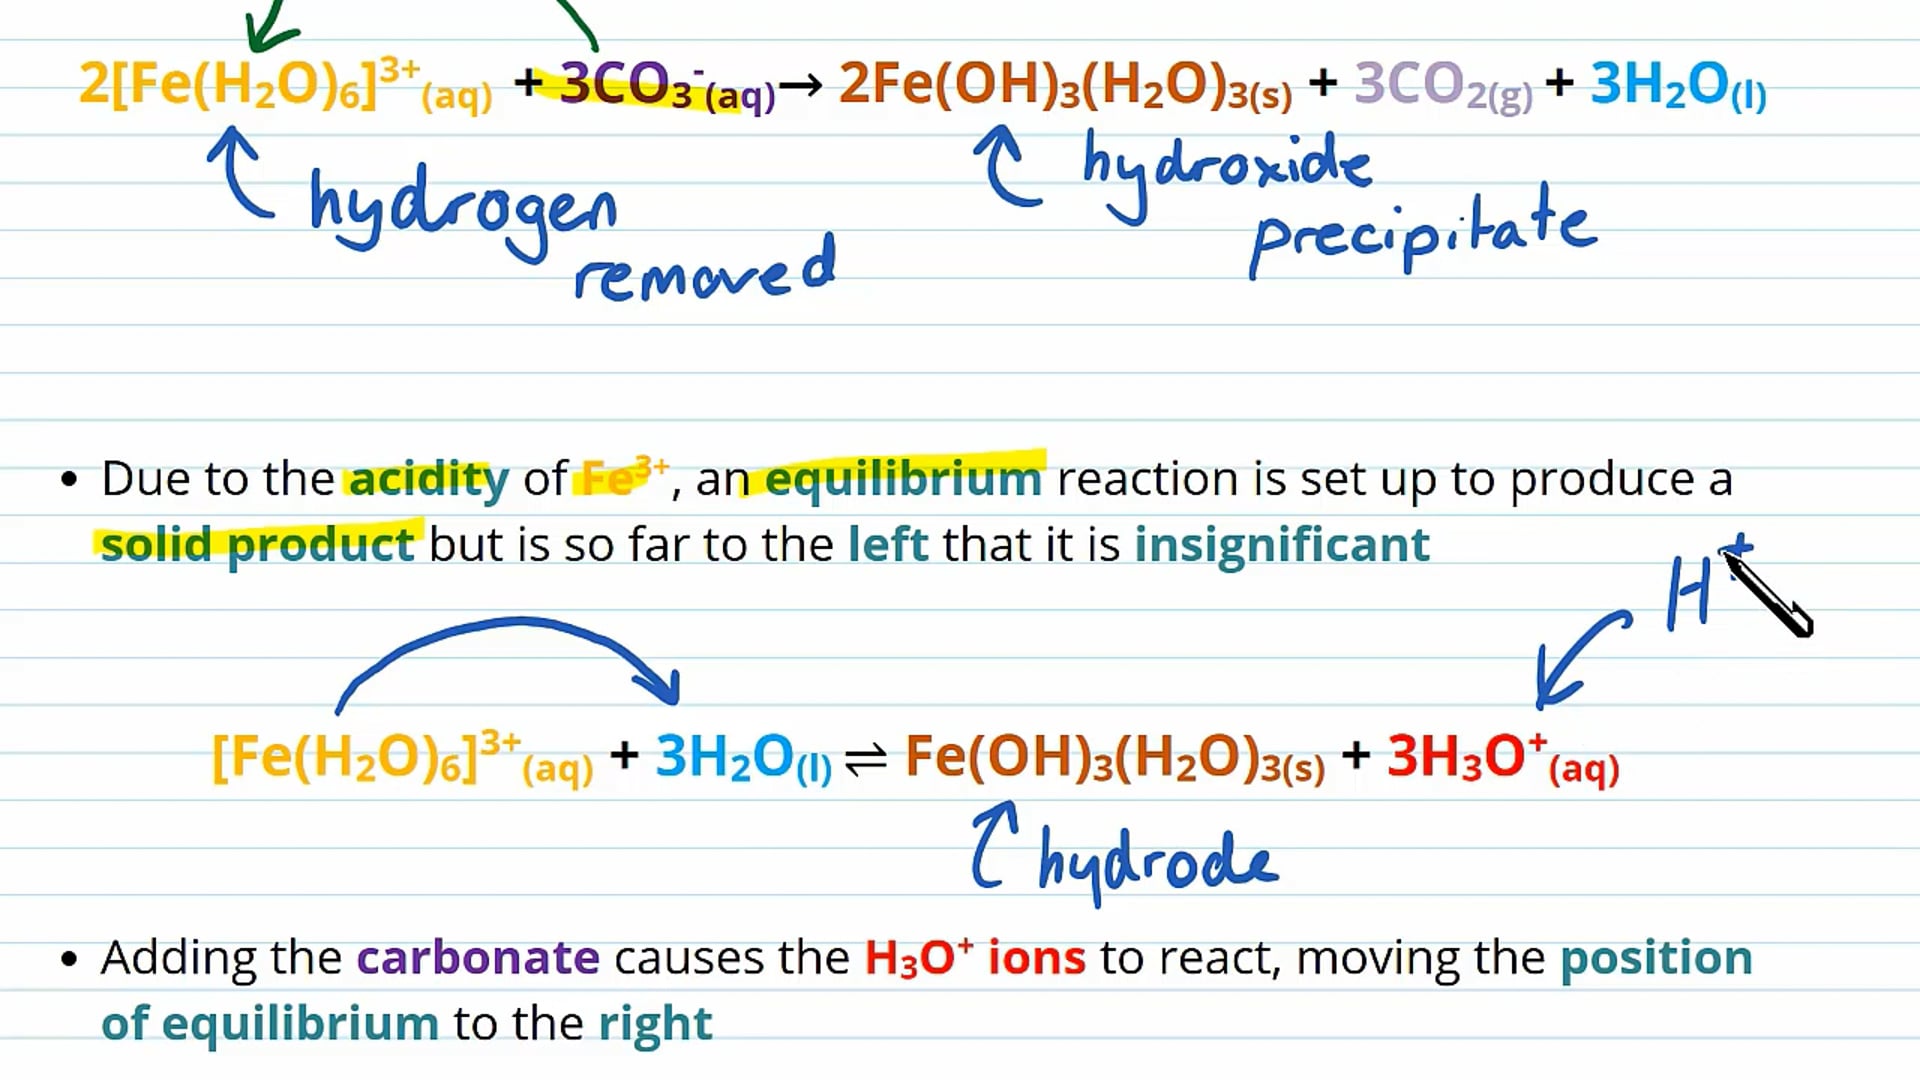 2[Fe(H₂O)₆]³⁺(aq) + 3CO₃⁻(aq)→ 2Fe(OH)₃(H₂O)₃(s) + 3CO₂(g) + 3H₂O(l)
hydrogen
removed
hydroxide
precipitate
• Due to the acidity of Fe³⁺, an equilibrium reaction is set up to produce a
solid product but is so far to the left that it is insignificant
H⁺
[Fe(H₂O)₆]³⁺(aq) + 3H₂O(l) ⇌ Fe(OH)₃(H₂O)₃(s) + 3H₃O⁺(aq)
hydrode
• Adding the carbonate causes the H₃O⁺ ions to react, moving the position
of equilibrium to the right